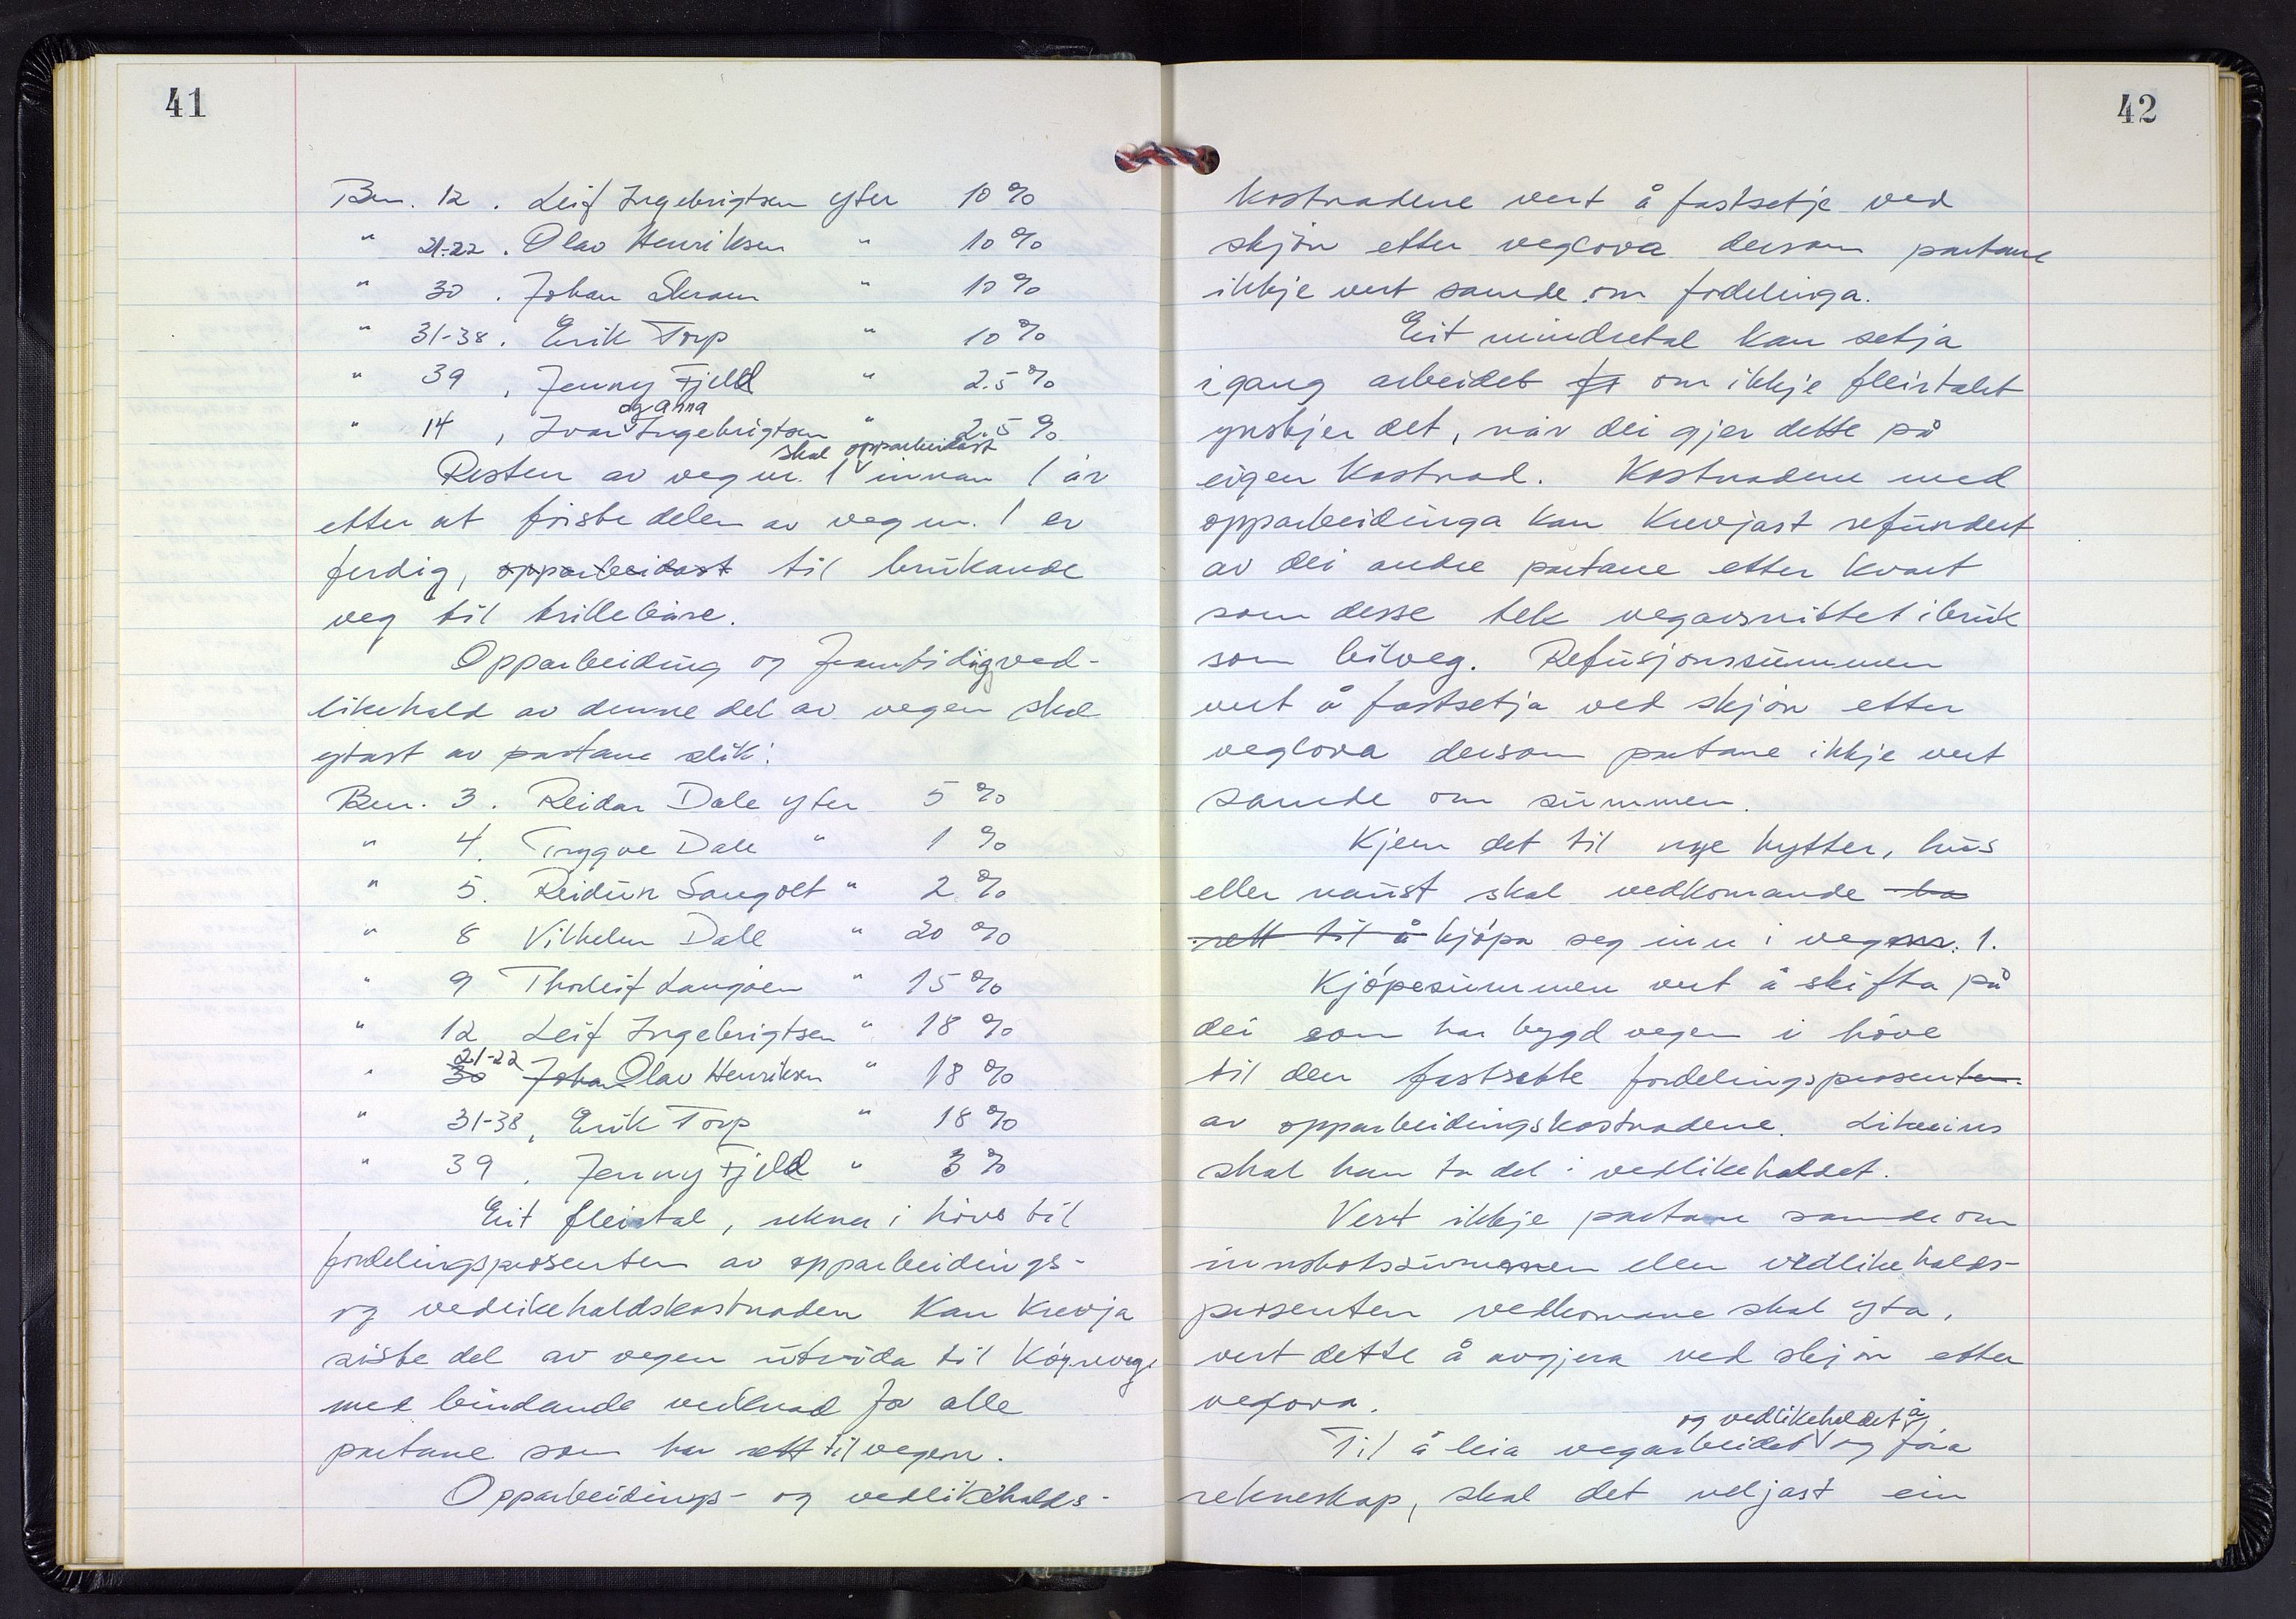 41
Bnr. 12 . Leif Ingebrigtsen yter 10 %
" 21-22 . Olav Henriksen " 10 %
" 30 . Johan Skram " 10 %
" 31-38 . Erik Torp " 10 %
" 39 , Jenny Fjeld " 2.5 %
og Anna
" 14 , Ivar Ingebrigtsen " 2.5 %
skal opparbeidast
Resten av veg nr. 1 innan 1 år
etter at første delen av veg nr. 1 er
ferdig, opparbeidast til brukande
veg til trillebåre.
Opparbeiding og framtidig ved-
likehald av denne del av vegen skal
ytast av partane slik:
Bnr. 3. Reidar Dale yter 5 %
" 4. Trygve Dale " 1 %
" 5. Reidun Sangolt " 2 %
" 8 Vilhelm Dale " 20 %
" 9 Thorleif Langøen " 15 %
" 12 Leif Ingebrigtsen " 18 %
21-22
" 30 Johan Olav Henriksen " 18 %
" 31-38, Erik Torp " 18 %
" 39 , Jenny Fjeld " 3 %
Eit fleirtal, rekna i høve til
fordelingsprosenten av opparbeidings-
og vedlikehaldskostnaden kan krevja
siste del av vegen utvida til køyreveg
med bindande verknad for alle
partane som har rett til vegen.
Opparbeidings- og vedlikehalds-
42
kostnadene vert å fastsetje ved
skjøn etter veglova dersom partane
ikkje vert samde om fordelinga.
Eit mindretal kan setja
igang arbeidet om ikkje fleirtalet
ynskjer det, når dei gjer dette på
eigen kostnad. Kostnadene med
opparbeidinga kan krevjast refundert
av dei andre partane etter kvart
som desse tek vegavsnittet i bruk
som bilveg. Refusjonssummen
vert å fastsetja ved skjøn etter
veglova dersom partane ikkje vert
samde om summen.
Kjem det til nye hytter, hus
eller naust skal vedkomande ha
rett til å kjøpa seg inn i veg nr. 1.
Kjøpesummen vert å skifta på
dei som har bygd vegen i høve
til den fastsette fordelingsprosenten
av opparbeidingskostnadene. Likeeins
skal han ta del i vedlikehaldet.
Vert ikkje partane samde om
innskotssummen eller vedlikehalds-
prosenten vedkomane skal yta,
vert dette å avgjera ved skjøn etter
veglova.
og vedlikehaldet å
Til å leia vegarbeidet og føra
rekneskap, skal det veljast ein